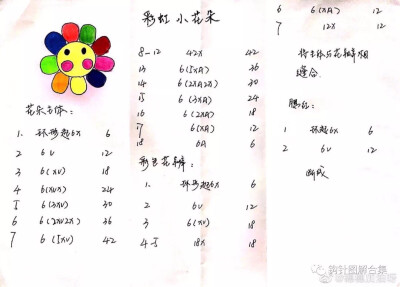 彩虹小花朵
花朵主体:
1. 环形起6x 6
2 6V 12
3 6(XV) 18
4 6(XVX) 24
5 6(3XV) 30
6 6(2XV2X) 36
7 6(5XV) 42
8-12 42X 42
13 6(5XA) 36
14 6(2XA2X) 30
15 6(3XA) 24
16 6(2XA) 18
17 6(XA) 12
18 6A 6
彩色花瓣:
1. 环形起6x 6
2 6V 12
3 6(XV) 18
4.5 18X 18
6 6(XA) 12
7 12X 12
将主体与花瓣用
缝合.
腮红:
1. 环起6x 6
2 6V 12
断线
钩针图解合集